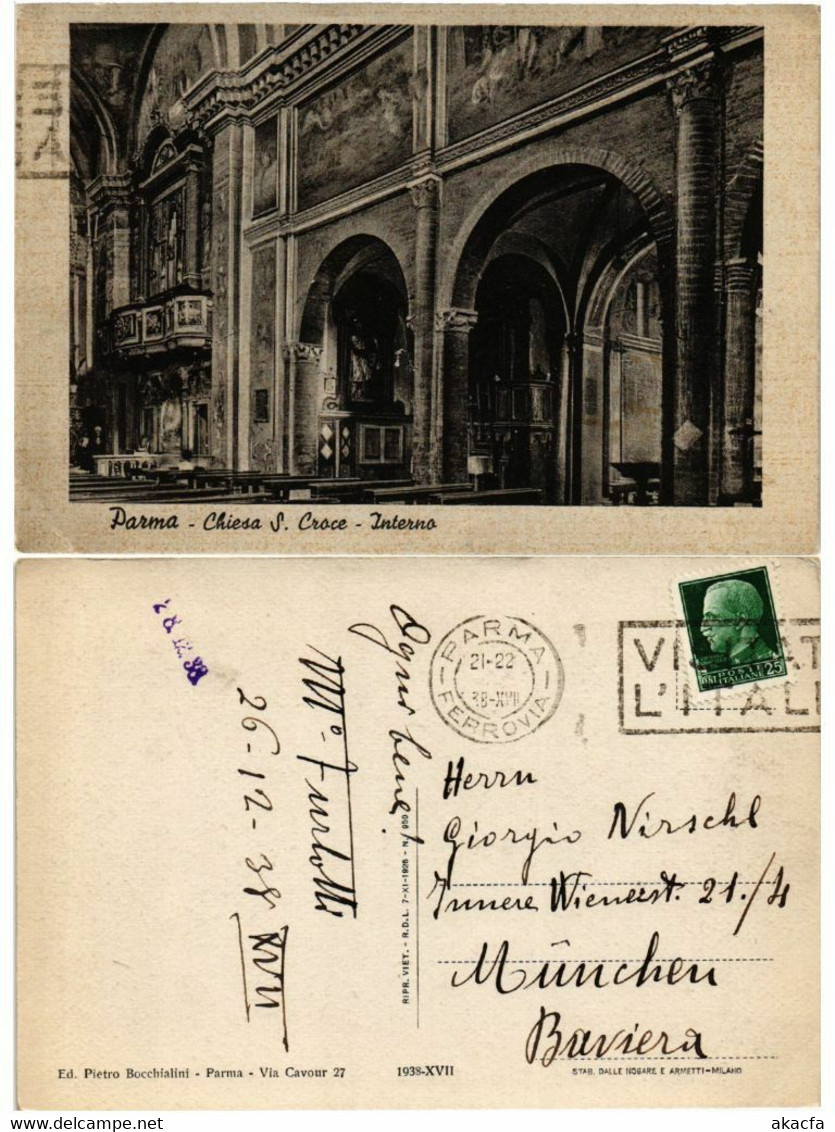 Parma - Chiesa S. Croce - Interno
28.12.38
PARMA
21-22
38-XVII
FERROVIA
VISITAT
L'ITALI
POSTE
ITALIANE
25
Ogni bene!
M° Furlotti
26-12-38 XVII
Herrn
Giorgio Nirschl
Innere Wienerst. 21./4
München
Baviera
RIPR. VIET. - R.D.L. 7-XI-1925 - N. 950
Ed. Pietro Bocchialini - Parma - Via Cavour 27
1938-XVII
STAB. DALLE NOGARE E ARMETTI-MILANO
akacfa